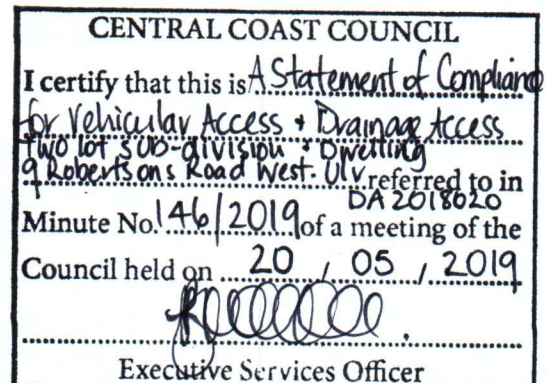 CENTRAL COAST COUNCIL
I certify that this is A Statement of Compliance
for Vehicular Access + Drainage Access
Two lot sub-division + Dwelling
9 Robertsons Road West. Ulv. referred to in
DA2018020
Minute No. 146/2019 of a meeting of the
Council held on 20 / 05 / 2019
Executive Services Officer